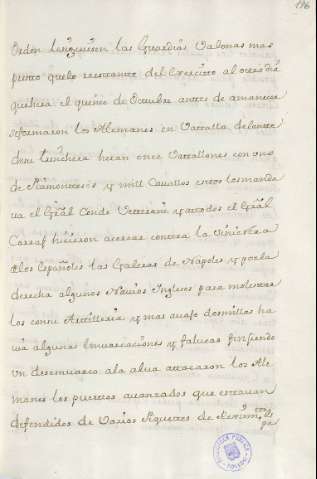 116
Orden tanvien las Guardias Valonas mas
presto que lo restante del Exercito al otro dia
que hera el quince de Octubre antes de amanecer
se formaron los Alemanes en Vatalla delante
de su trinchera heran once Vatallones con uno
de Piamonteses y mill Cavallos estos los manda
va el Gral Conde Veterani y atodos el Gral
Carraf hicieron acercar contra la siniestra
a los Españoles las Galeras de Napoles y por la
derecha algunos Navios Ingleses para molestar
los con su Artilleria y mas avajo de Mili ha
via algunas Emvarcaciones y faluas finjiendo
un desemvarco a la alva atacaron los Ale
manes los puestos avanzados que estavan
defendidos de Varios Piquetes de
BIBLIOTECA PUBLICA
TOLEDO